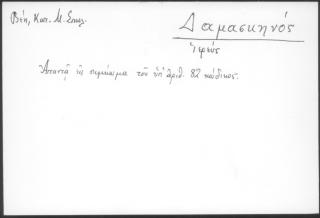 Βέη, Κατ. Μ. Σπηλ.
Δαμασκηνός
Ἱερεύς
Ἀπαντᾷ εἰς σημείωμα τοῦ ὑπ' ἀριθ. 82 κώδικος.